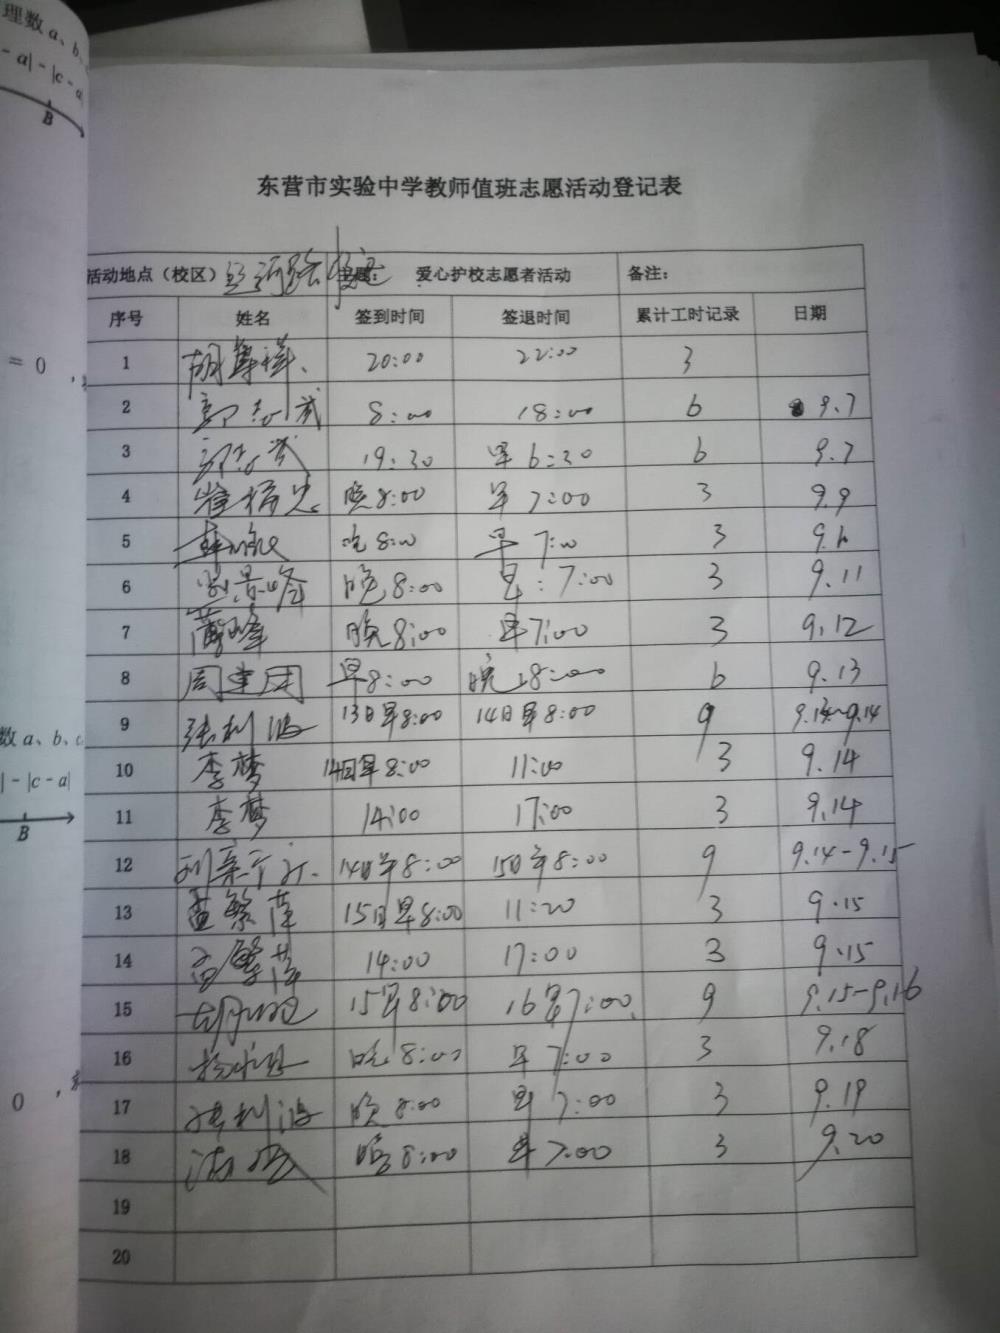 理数 a、b、
- a| - |c - a|
B
= 0 ，
数 a、b、c
| - |c - a|
B
0 ，
东营市实验中学教师值班志愿活动登记表
活动地点（校区） 主题： 爱心护校志愿者活动 备注：
序号 姓名 签到时间 签退时间 累计工时记录 日期
1 20:00 22:00 3
2 8:00 18:00 6 9.7
3 19:30 早6:30 6 9.7
4 晚8:00 早7:00 3 9.9
5 晚8:00 早7:00 3
6 晚8:00 早:7:00 3 9.11
7 晚8:00 早7:00 3 9.12
8 周建国 早8:00 晚18:00 6 9.13
9 张利波 13日早8:00 14日早8:00 9 9.13~9.14
10 李梦 14日早8:00 11:00 3 9.14
11 李梦 14:00 17:00 3 9.14
12 14日早8:00 15日早8:00 9 9.14-9.15
13 孟繁萍 15日早8:00 11:20 3 9.15
14 孟繁萍 14:00 17:00 3 9.15
15 15早8:00 16早7:00 9 9.15-9.16
16 晚8:00 早7:00 3 9.18
17 张利波 晚8:00 早7:00 3 9.19
18 晚8:00 早7:00 3 9.20
19
20